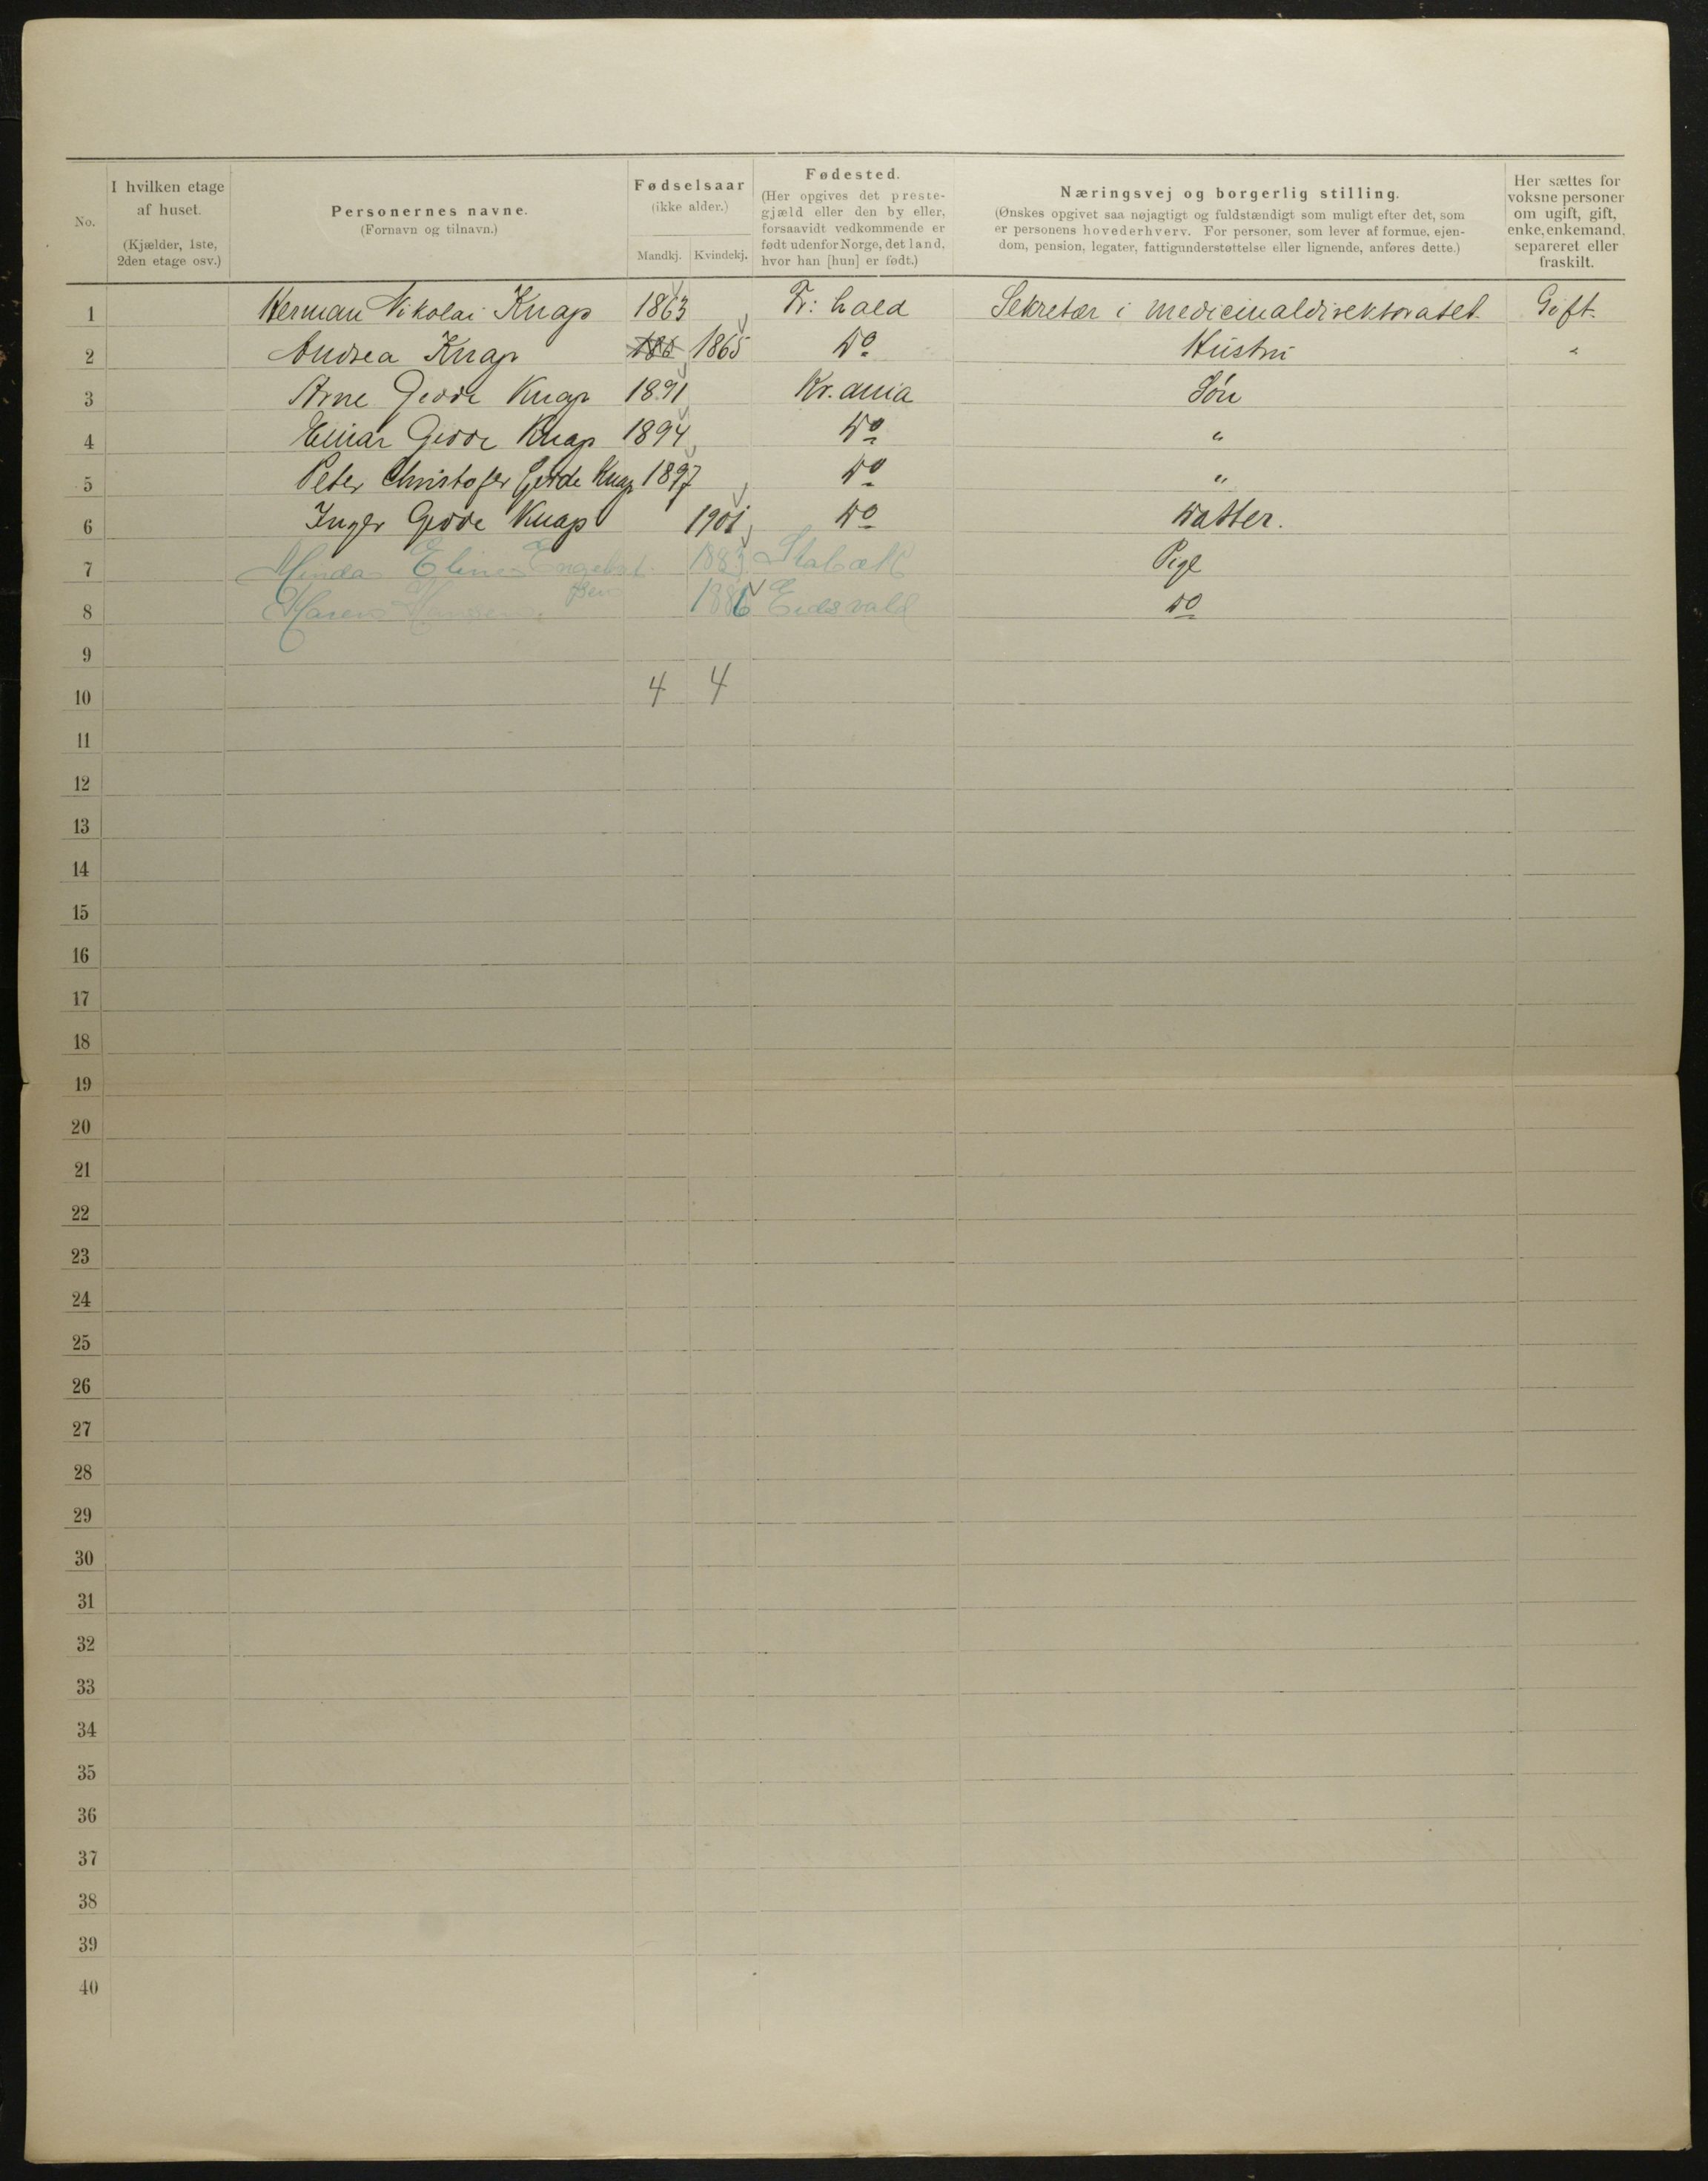 No.
I hvilken etage af huset. (Kjælder, 1ste, 2den etage osv.)
Personernes navne. (Fornavn og tilnavn.)
Fødselsaar (ikke alder.)
Mandkj. Kvindekj.
Fødested. (Her opgives det prestegjæld eller den by eller, forsaavidt vedkommende er født udenfor Norge, det land, hvor han [hun] er født.)
Næringsvej og borgerlig stilling. (Ønskes opgivet saa nøjagtigt og fuldstændigt som muligt efter det, som er personens hovederhverv. For personer, som lever af formue, ejendom, pension, legater, fattigunderstøttelse eller lignende, anføres dette.)
Her sættes for voksne personer om ugift, gift, enke, enkemand, separeret eller fraskilt.
1 Herman Nikolai Knap 1863 Fr: hald Sekretær i medicinaldirektoratet. Gift.
2 Andrea Knap 1865 Do Hustru "
3 Arne Gedde Knap 1891 Kr. ania Søn
4 Einar Gedde Knap 1894 Do "
5 Peter Christofer Gedde Knap 1897 Do "
6 Inger Gedde Knap 1901 Do Datter.
7 Eline Engebret- 1883 Stabæk Pige
sen
8 Maren Hansen 1886 Eidsvold Do
9
10 4 4
11
12
13
14
15
16
17
18
19
20
21
22
23
24
25
26
27
28
29
30
31
32
33
34
35
36
37
38
39
40